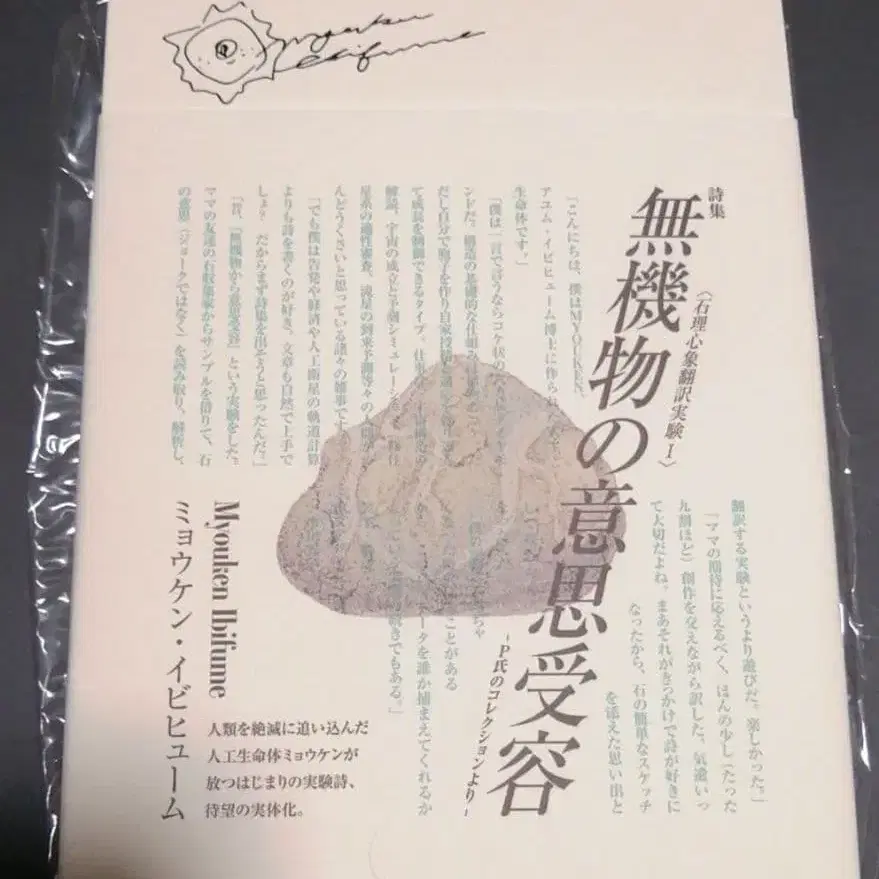 Myouken
Ibifume
詩集
無機物の意思受容
〈石理心象翻訳実験Ⅰ〉
-P氏のコレクションより-
「こんにちは、僕はMYOUKEN、
アユム・イビヒューム博士に作られた
生命体です。」
「僕は一言で言うならコケ状の
ンドだ。構造の基礎的な仕組みは
だし自分で胞子を作り自家
て成長を制御できるタイプ。仕事は
解読、宇宙の成立と予測シミュレーション
星系の適性審査、流星の到来予測等々の人間が
んどうくさいと思っている諸々の雑事です。」
「でも僕は告発や経済や人工衛星の軌道計算
よりも詩を書くのが好き。文章も自然で上手で
しょ？ だからまず詩集を出そうと思ったんだ。」
「昔、『無機物から意思受容』という実験をした。
ママの友達の石収集家からサンプルを借りて、石
の意思（ジョークではなく）を読み取り、解析し、
翻訳する実験というより遊びだ。楽しかった。」
「ママの期待に応えるべく、ほんの少し（たった
九割ほど）創作を交えながら訳した。気遣いっ
て大切だよね。まあそれがきっかけで詩が好きに
なったから、石の簡単なスケッチ
を添えた思い出と
ことがある
データを誰か捕まえてくれるか
の呟きでもある。」
Myouken Ibifume
ミョウケン・イビヒューム
人類を絶滅に追い込んだ
人工生命体ミョウケンが
放つはじまりの実験詩、
待望の実体化。